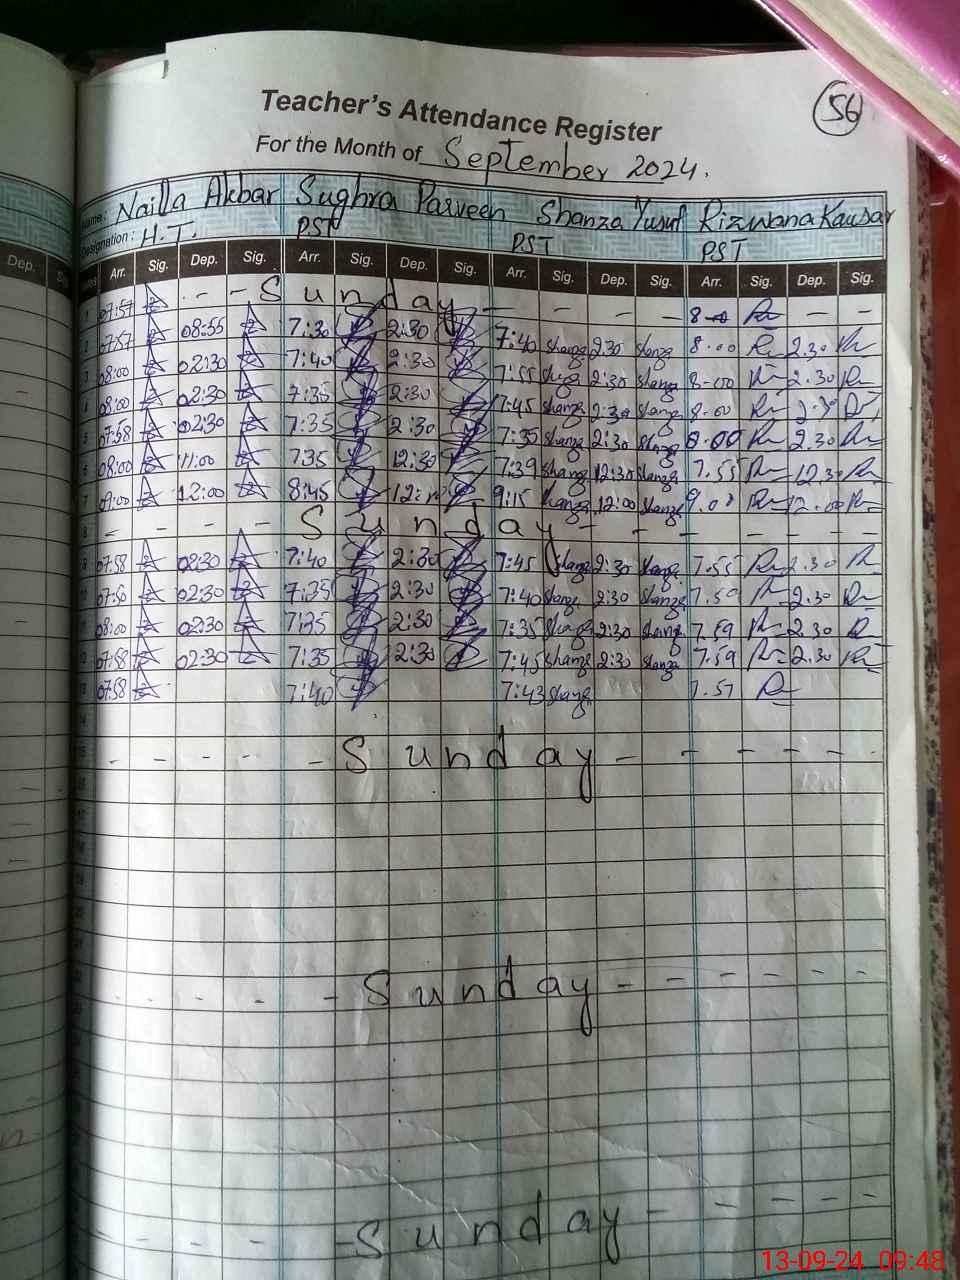 56
Teacher's Attendance Register
For the Month of September 2024.
Name: Nailla Akbar Sughra Parveen Shanza Yusuf Rizwana Kausar
Designation: H.T. PST PST PST
Dep. Arr. Sig. Dep. Sig. Arr. Sig. Dep. Sig. Arr. Sig. Dep. Sig. Arr. Sig. Dep. Sig.
1 07:57 - - - Sunday - - - - - 8
2 07:57 08:55 7:30 2:30 7:40 Shanza 2:30 Shanza 8.00 2.30
3 08:00 02:30 7:40 2:30 7:55 2:30 Shanza 8-00 2.30
4 08:00 02:30 7:35 2:30 7:45 Shanza 2:30 Shanza 8.00 2.30
5 07:58 02:30 7:35 2:30 7:35 Shanza 2:30 Shanza 8.00 2.30
6 08:00 11:00 7:35 12:30 7:39 Shanza 12:30 Shanza 7.55 12.30
7 09:00 12:00 8:45 9:15 Shanza 12:00 Shanza 12.00
8 - - - - Sunday - - - - - - -
9 07:58 02:30 7:40 2:30 7:45 Shanza 2:30 Shanza 7.55 2.30
10 07:56 02:30 7:35 2:30 7:40 Shanza 2:30 Shanza 7.50 2.30
11 08:00 02:30 7:35 2:30 7:35 Shanza 2:30 Shanza 7.59 2.30
12 07:58 02:30 7:35 2:30 7:45 Shanza 2:30 Shanza 7.59 2.30
13 07:58 7:40 7:43 Shanza 7.57
- - - - - Sunday - - - - - -
- - - - - Sunday - - - - - -
- - - - Sunday - - - - - -
13-09-24 09:48